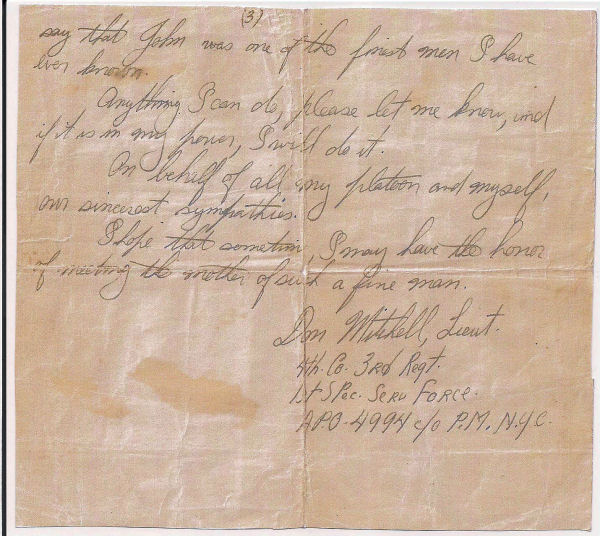 (3)
say that John was one of the finest men I have
ever known.
Anything I can do, please let me know, and
if it is in my power, I will do it.
On behalf of all my platoon and myself,
our sincerest sympathies.
I hope that sometime, I may have the honor
of meeting the mother of such a fine man.
Don Mitchell, Lieut.
4th. Co. 3rd Regt.
1st Spec. Serv Force.
A.P.O. 4994 c/o P.M. N.Y.C.